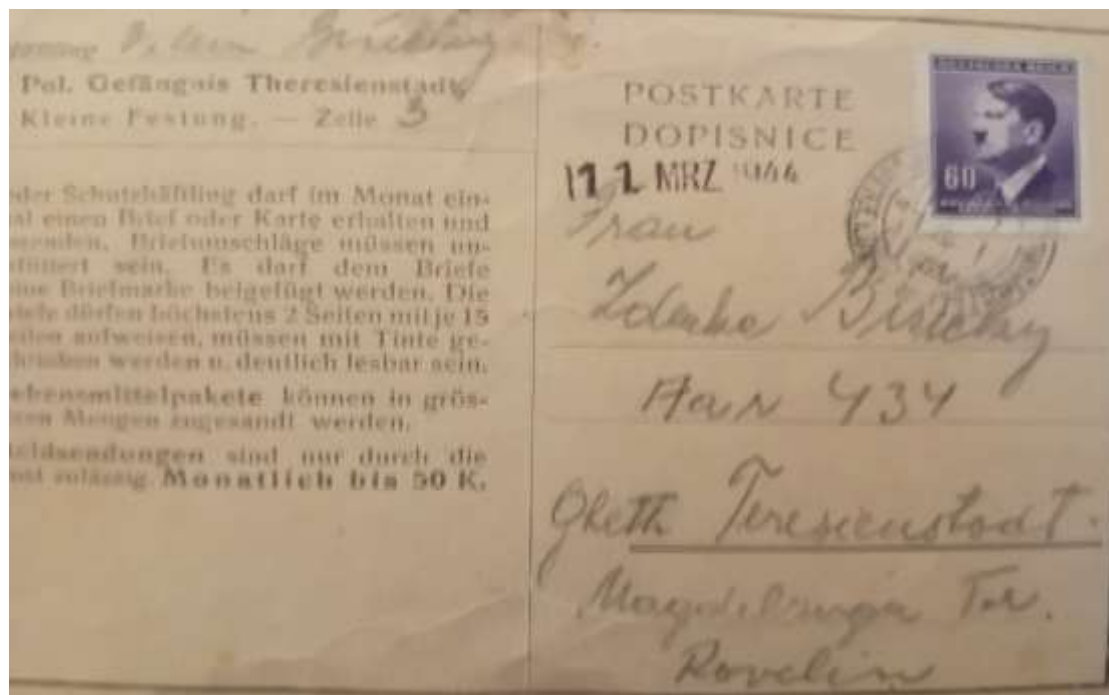 Pol. Gefängnis Theresienstadt
Kleine Festung. — Zelle 3
der Schutzhäftling darf im Monat ein-
al einen Brief oder Karte erhalten und
senden. Briefumschläge müssen un-
füttert sein. Es darf dem Briefe
ine Briefmarke beigefügt werden. Die
iefe dürfen höchstens 2 Seiten mit je 15
eilen aufweisen, müssen mit Tinte ge-
chrieben werden u. deutlich lesbar sein.
ebensmittelpakete können in grös-
ren Mengen zugesandt werden.
eldsendungen sind nur durch die
ost zulässig. Monatlich bis 50 K.
POSTKARTE
DOPISNICE
MRZ. 1944
DEUTSCHES REICH
60
Frau
Zdenka
434
Ghetto Teresienstadt.